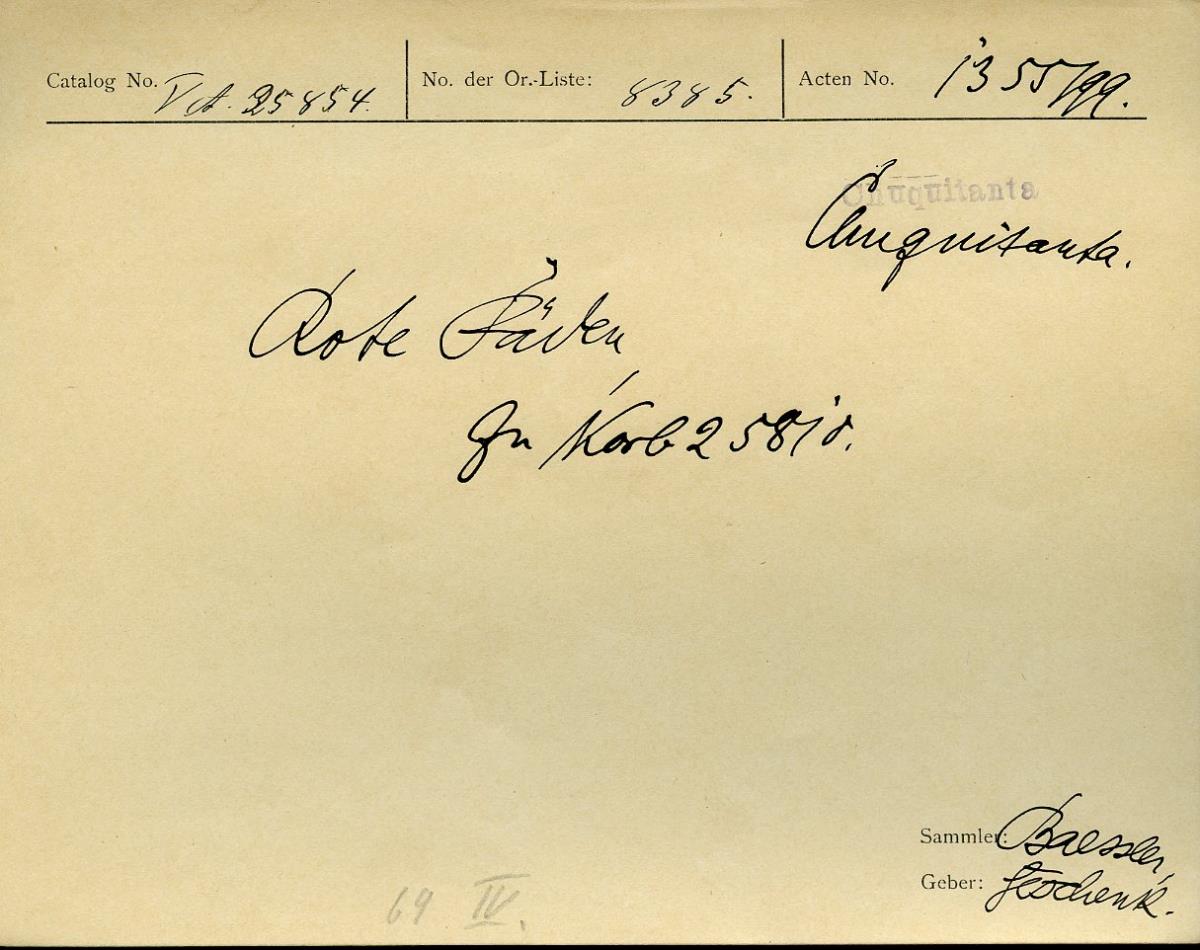 Catalog No. VA. 25854. No. der Or.-Liste: 8385. Acten No. 1355/99.
Chuquitanta
Chuquitanta.
Rote Fäden
zu Korb 25818.
Sammler: Baessler,
Geber: Geschenk.
64 IV.